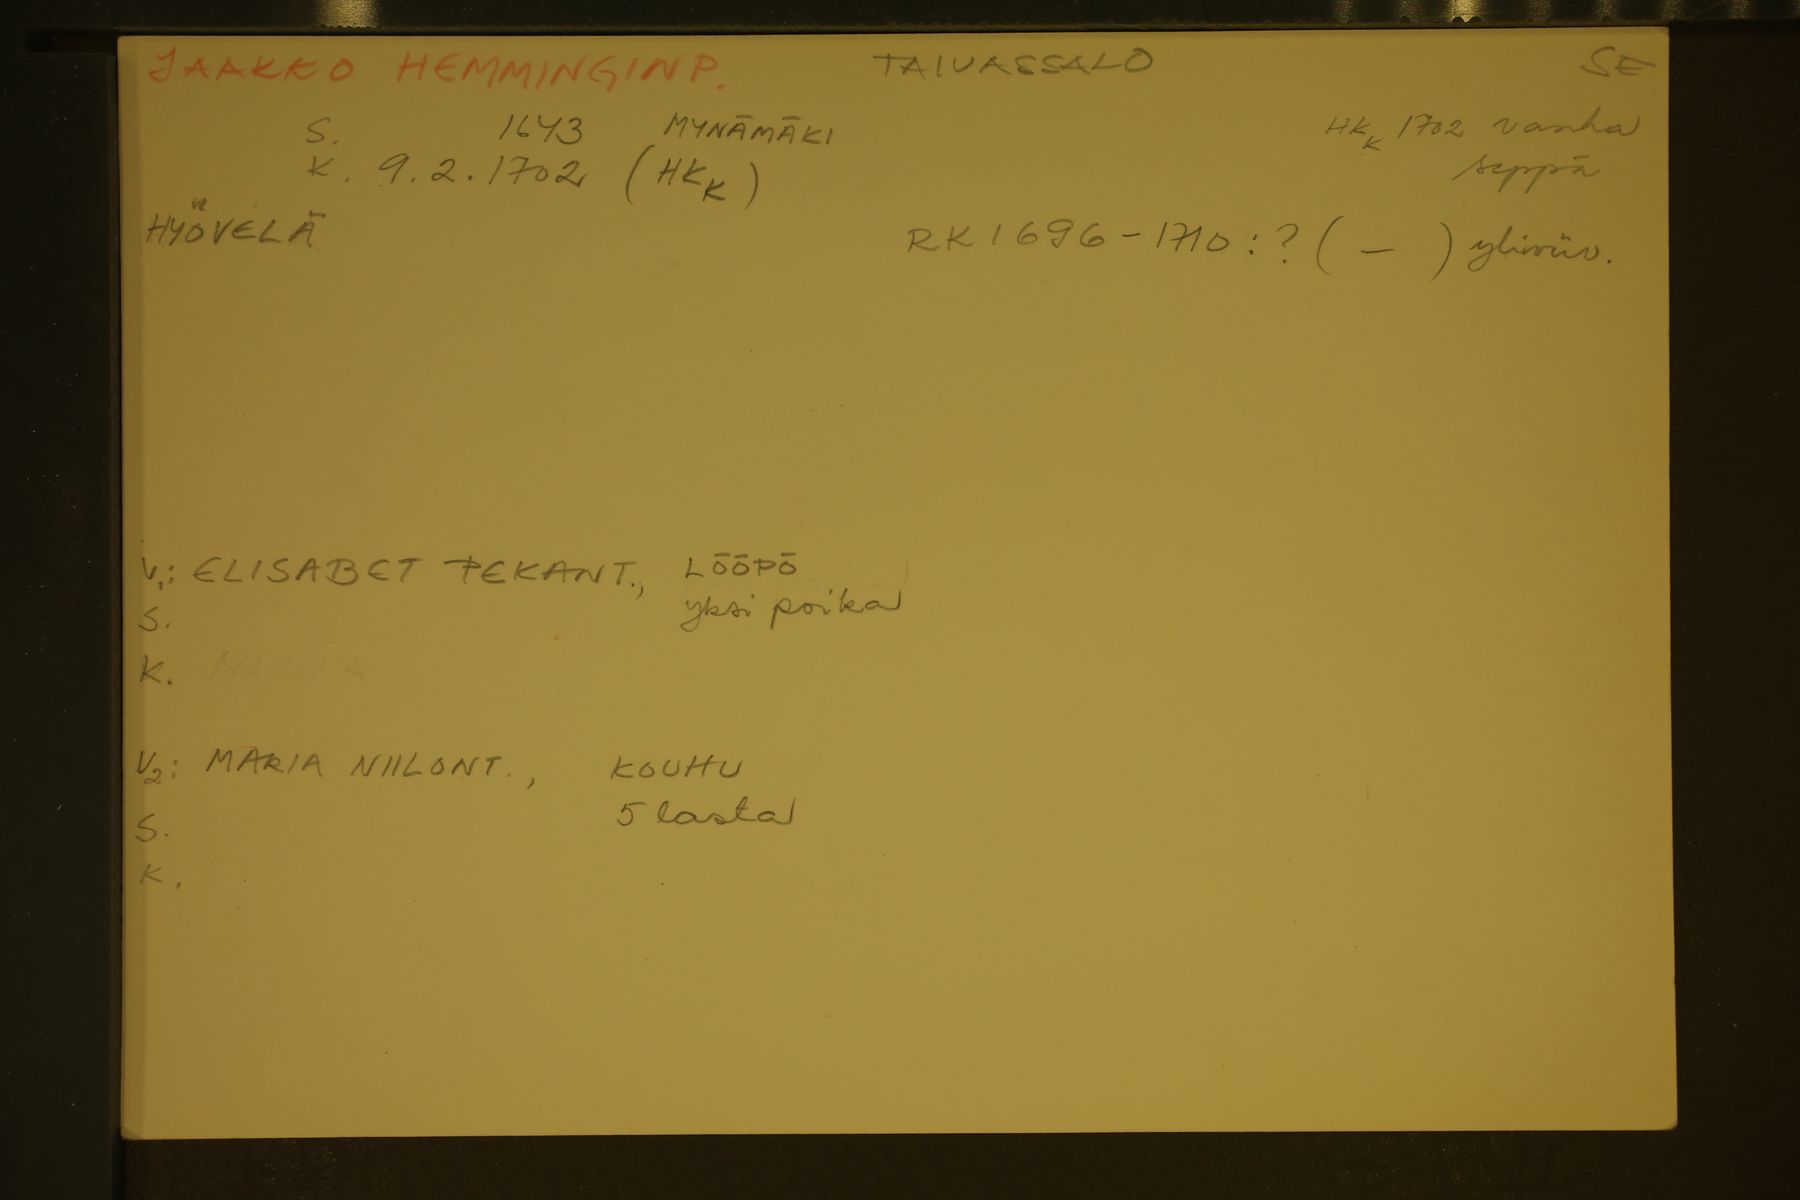 JAAKKO HEMMINGINP. TAIVASSALO SE
S. 1643 MYNÄMÄKI HKK 1702 vanha
K. 9.2.1702 (HKK) seppä
HYÖVELÄ RK 1696-1710:? ( - ) yliviiv.
V1: ELISABET PEKANT., LÖÖPÖ
S. yksi poika
K. MARINA
V2: MARIA NIILONT., KOUHU
S. 5 lasta
K.